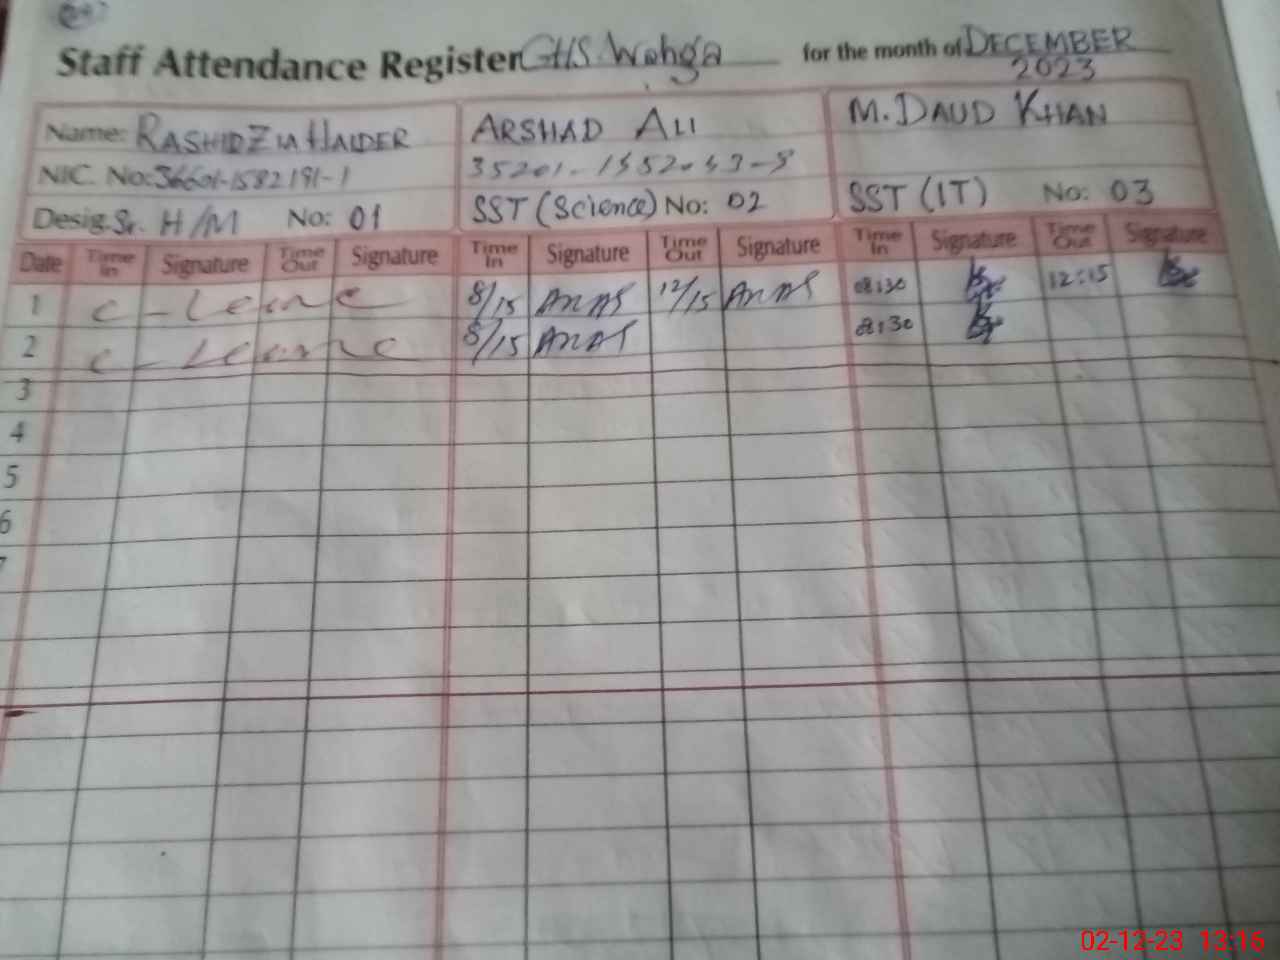 Staff Attendance Register GHS. Wahga for the month of DECEMBER
2023
Name: RASHID ZIA HAIDER ARSHAD ALI M. DAUD KHAN
NIC. No: 36601-1582191-1
Desig. Sr. H/M No: 01 SST (Science) No: 02 SST (IT) No: 03
Date Time In Signature Time Out Signature Time In Signature Time Out Signature Time In Signature Time Out Signature
1 C-Leave 8/15 12/15 08:30 12:15
2 C-Leave 8/15 8:30
3
4
5
6
7
02-12-23 13:16